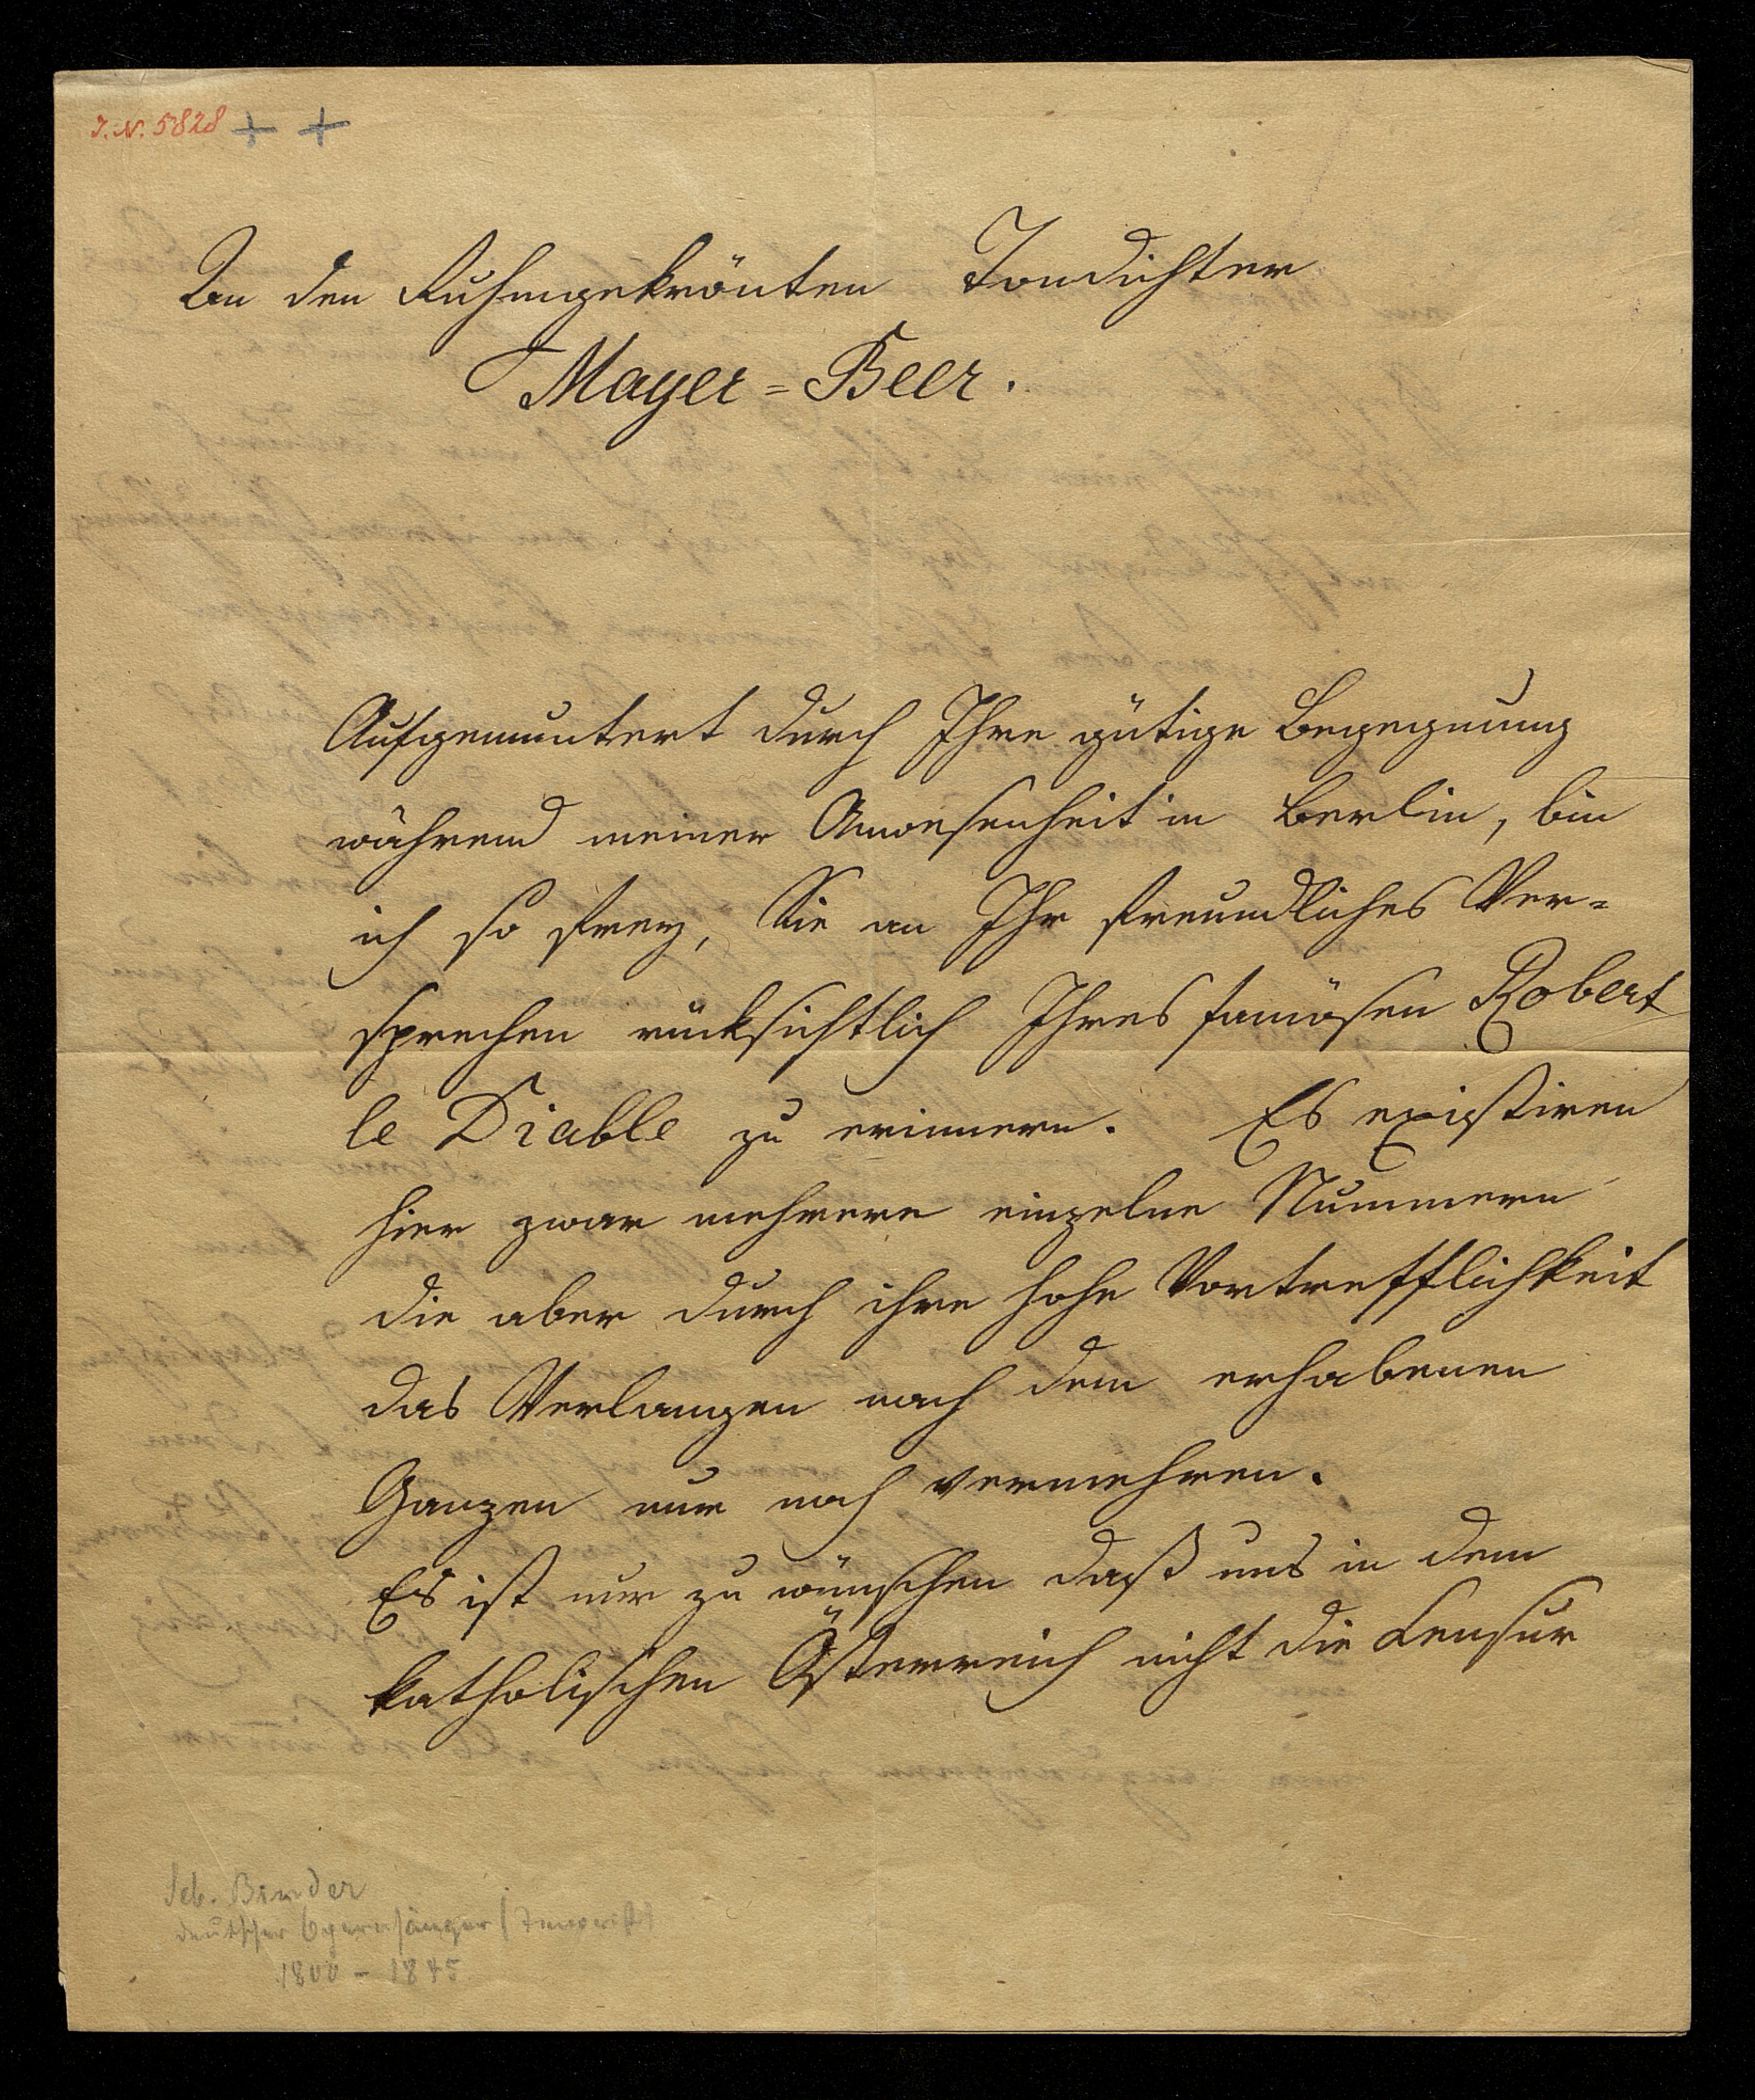 I. N. 5828 + +
An den Ruhmgekrönten Tondichter
Mayer=Beer.
Aufgemuntert durch Ihre gütige Begegnung
während meiner Anwesenheit in Berlin, bin
ich so frey, Sie an Ihr freundliches Ver=
sprechen rücksichtlich Ihres famösen Robert
le Diable zu erinnern. Es existiren
hier zwar mehrere einzelne Nummern
die aber durch ihre hohe Vortrefflichkeit
das Verlangen nach dem erhabenen
Ganzen nur noch vermehren.
Es ist nur zu wünschen daß uns in dem
katholischen Österreich nicht die Censur
Seb. Binder
deutscher Opernsänger (Tenorist)
1800 - 1845